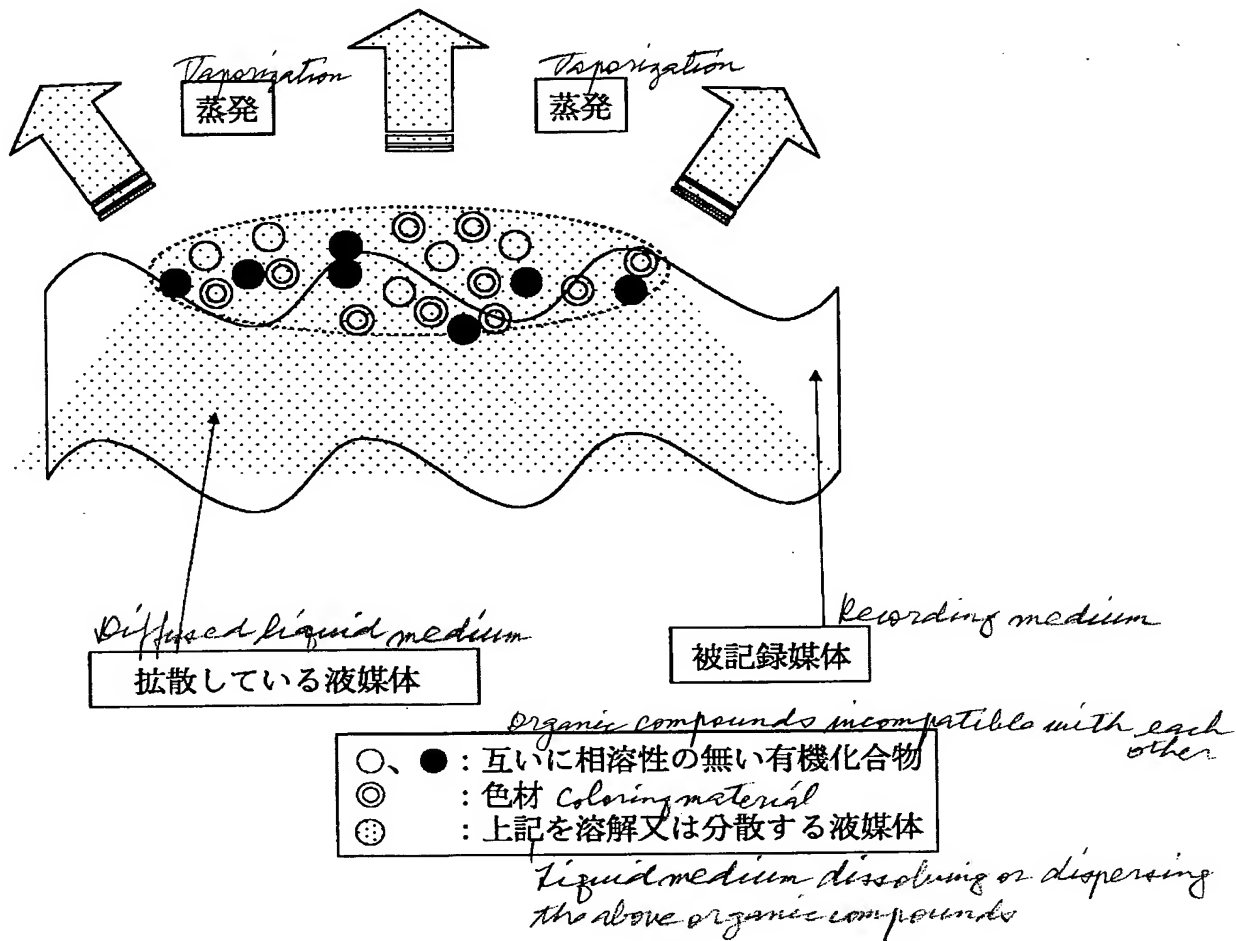 Vaporization
蒸発
Vaporization
蒸発
Diffused liquid medium
拡散している液媒体
Recording medium
被記録媒体
organic compounds incompatible with each
other
○、●:互いに相溶性の無い有機化合物
◎:色材 Coloring material
:上記を溶解又は分散する液媒体
Liquid medium dissolving or dispersing
the above organic compounds